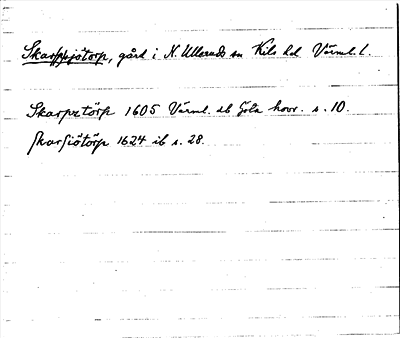 Skarpsjötorp, gård i N. Ulleruds sn Kils hd Värml. l.
Skarpetörp 1605 Värml. db Göta hovr. s. 10.
Skarsiötörp 1624 ib s. 28.